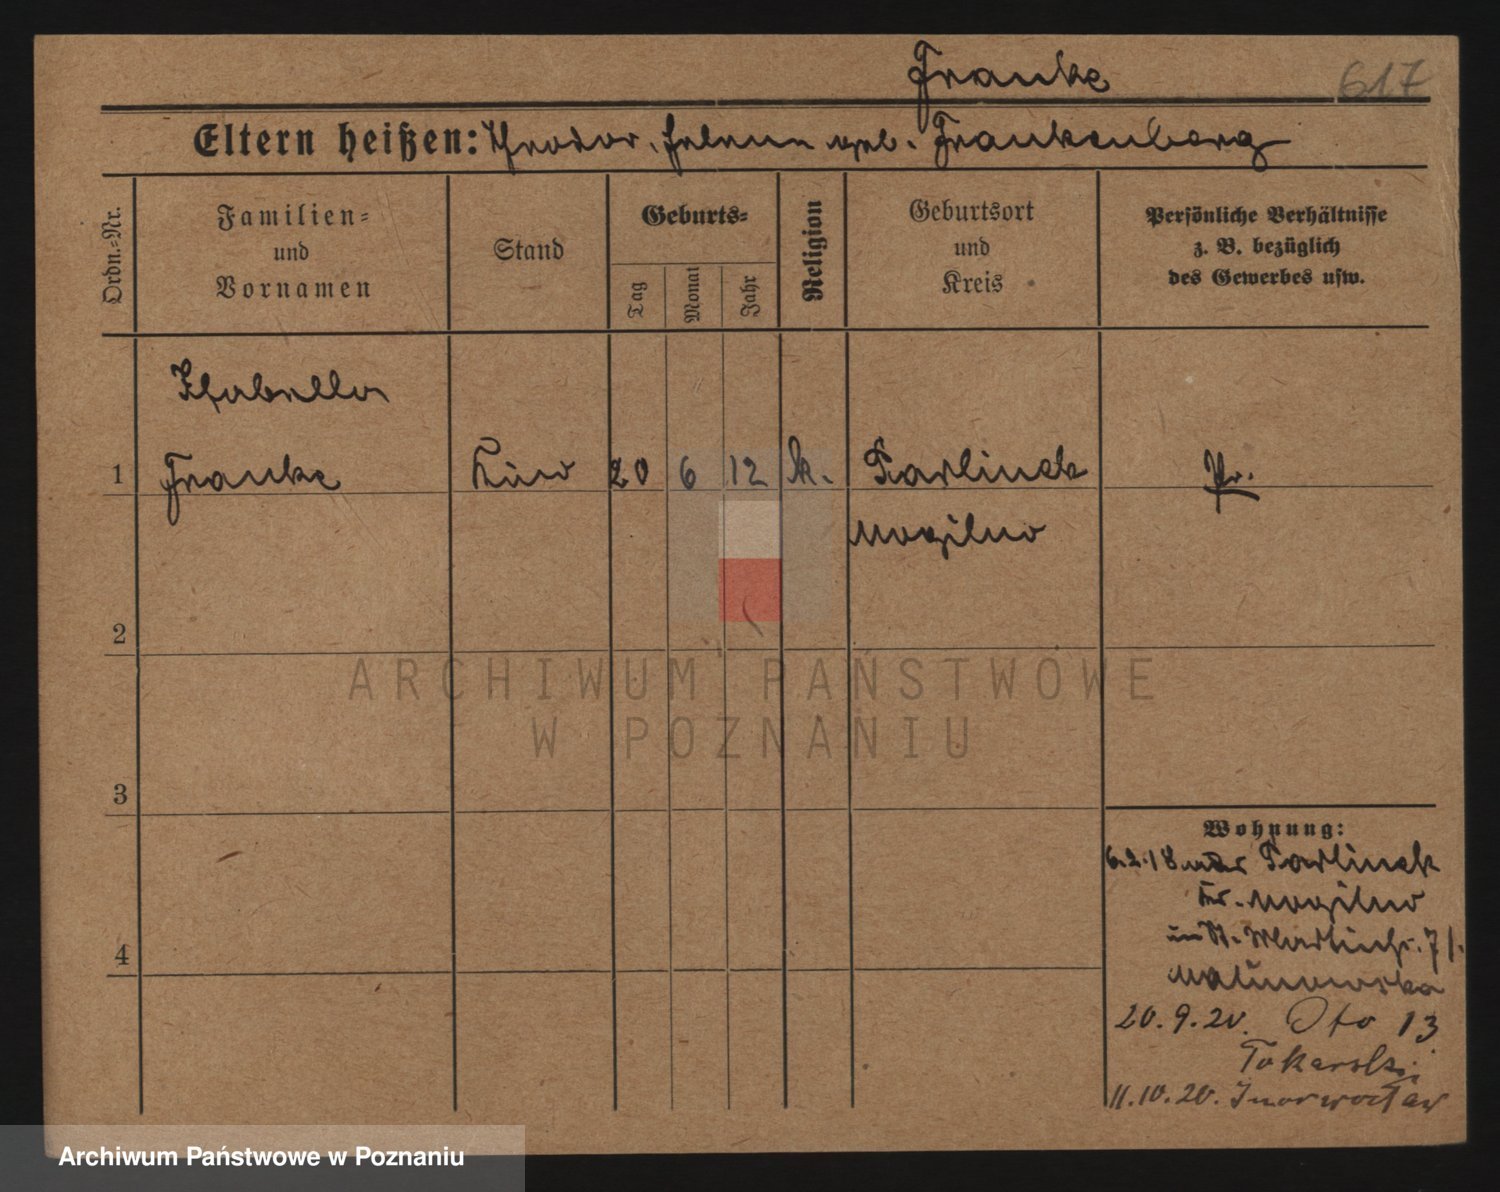 Franke 617
Eltern heißen: Theodor, Helene geb. Frankenberg
Ordn.-Nr.
Familien-
und
Vornamen
Stand
Geburts-
Tag
Monat
Jahr
Religion
Geburtsort
und
Kreis
Persönliche Verhältnisse
z. B. bezüglich
des Gewerbes usw.
Isabella
1 Franke Kind 20 6 12 k. Parlinek Pr.
Mogilno
2
ARCHIWUM PAŃSTWOWE
W POZNANIU
3
Wohnung:
6.2.18 aus Parlinek
Kr. Mogilno
in St. Martinstr. 71.
Malinowska
4
20.9.20. Oto 13
Tokarski
11.10.20. Inowrocław
Archiwum Państwowe w Poznaniu